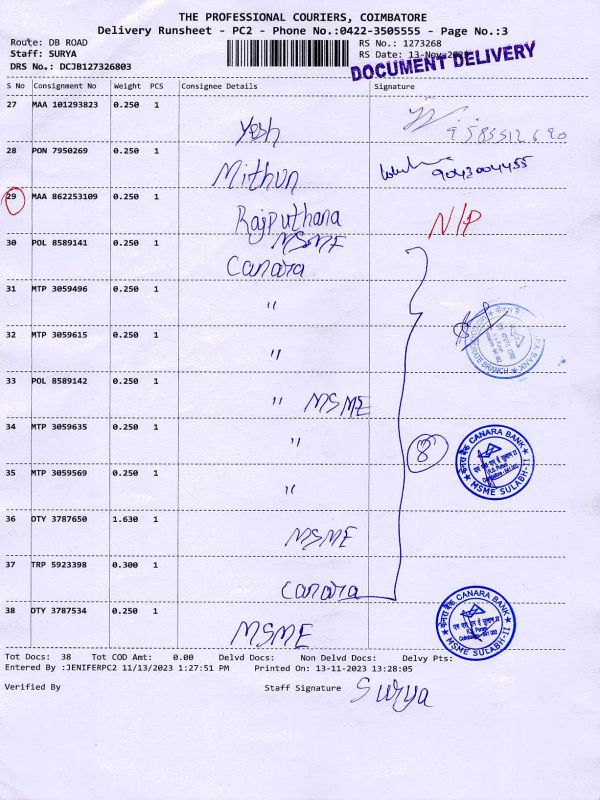 THE PROFESSIONAL COURIERS, COIMBATORE
Delivery Runsheet - PC2 - Phone No.:0422-3505555 - Page No.:3
Route: DB ROAD
RS No.: 1273268
Staff: SURYA
RS Date: 13-Nov-
DOCUMENT DELIVERY
DRS No.: DCJB127326803
S No Consignment No Weight PCS Consignee Details Signature
27 MAA 101293823 0.250 1
Yesh
28 PON 7950269 0.250 1
Mithun 9043004455
29 MAA 862253109 0.250 1
Rajputhana N/P
MSME
30 POL 8589141 0.250 1
Canara
31 MTP 3059496 0.250 1
"
32 MTP 3059615 0.250 1
"
33 POL 8589142 0.250 1
" MSME
34 MTP 3059635 0.250 1
" 8
CANARA BANK
MSME SULABH-II
35 MTP 3059569 0.250 1
"
36 OTY 3787650 1.630 1
MSME
37 TRP 5923398 0.300 1
Canara
38 OTY 3787534 0.250 1
MSME
CANARA BANK
MSME SULABH-II
Tot Docs: 38 Tot COD Amt: 0.00 Delvd Docs: Non Delvd Docs: Delvy Pts:
Entered By :JENIFERPC2 11/13/2023 1:27:51 PM Printed On: 13-11-2023 13:28:05
Verified By Staff Signature Surya